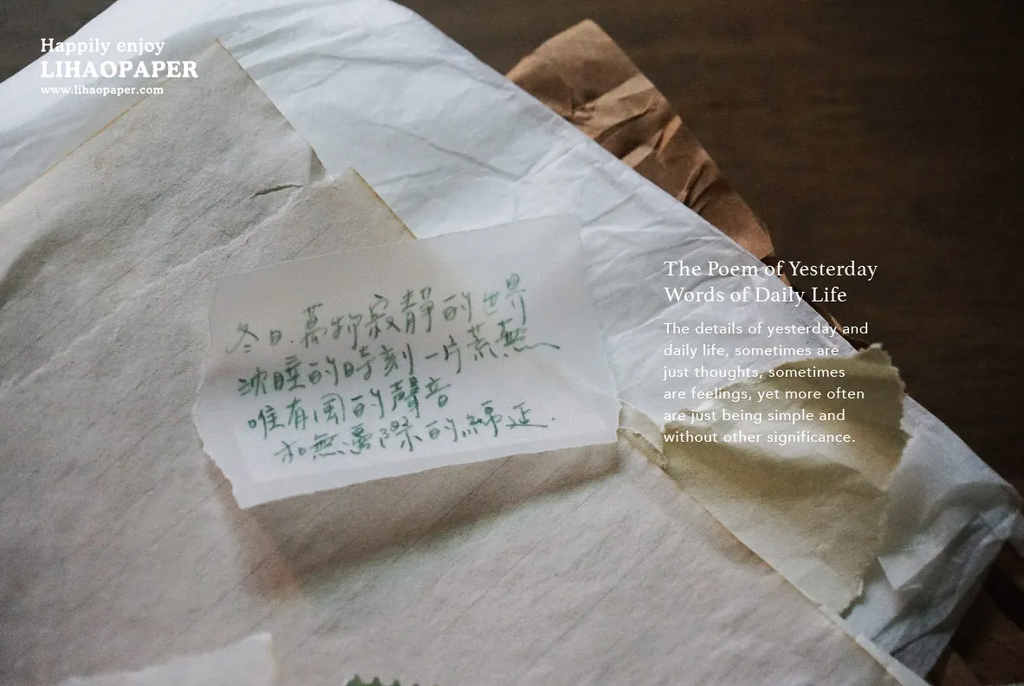 Happily enjoy
LIHAOPAPER
www.lihaopaper.com
冬日.萬物寂靜的世界
沈睡的時刻一片荒蕪
唯有風的聲音
和無邊際的綿延.
The Poem of Yesterday
Words of Daily Life
The details of yesterday and
daily life, sometimes are
just thoughts, sometimes
are feelings, yet more often
are just being simple and
without other significance.